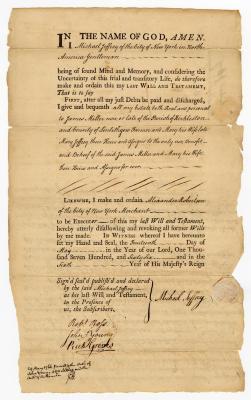 IN THE NAME OF GOD, AMEN.
I Michael Jeffrey of the City of New York in North
America Gentleman
being of sound Mind and Memory, and considering the
Uncertainty of this frail and transitory Life, do therefore
make and ordain this my LAST WILL AND TESTAMENT,
That is to say
FIRST, after all my just Debts be paid and discharged,
I give and bequeath all my Estate both Real and personal
to James Miller now or late of the Parish of
and County of and Mary his Wife late
Mary Jeffrey their Heirs and Assigns to the only use benefit
and Behoof of the said James Miller and Mary his Wife
their Heirs and Assigns for ever
LIKEWISE, I make and ordain Alexander Robertson
of the City of New York Merchant
to be EXECUTOR of this my last Will and Testament,
hereby utterly disallowing and revoking all former Wills
by me made. IN WITNESS whereof I have hereunto
set my Hand and Seal, the Day of
May in the Year of our Lord, One Thou-
sand Seven Hundred, and and in the
Sixth Year of His Majesty's Reign
Sign'd seal'd publish'd and declared
by the said Michael Jeffrey
as his last Will and Testament,
in the Presence of
us, the Subscribers,
Michael Jeffrey
Robt. Ross
John